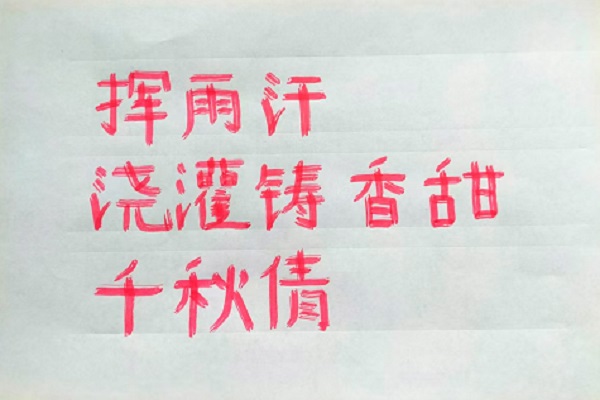 挥雨汗
浇灌铸香甜
千秋倩